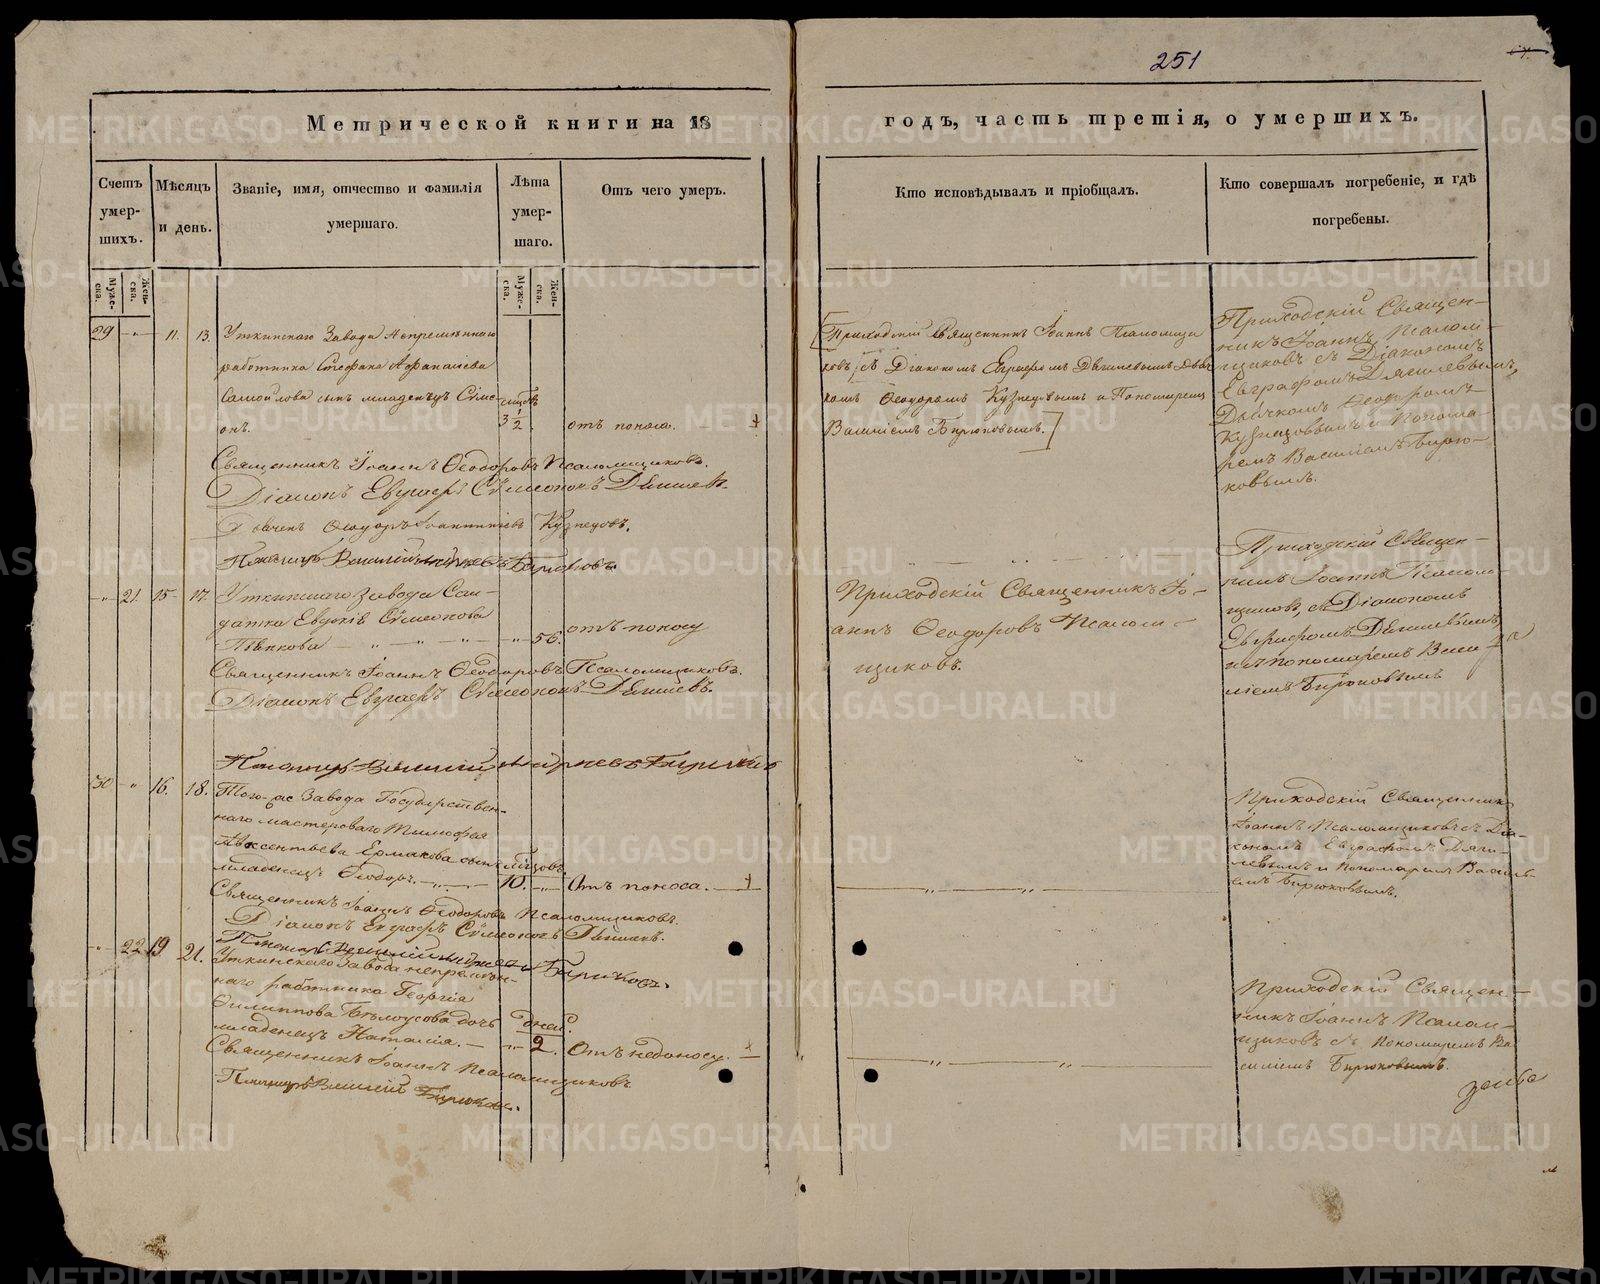 251
Метрической книги на 18
годъ, часть третія, о умершихъ.
Счетъ умер-шихъ.
Мѣсяцъ и день.
Званіе, имя, отчество и фамилія умершаго.
Лѣта умер-шаго.
Отъ чего умеръ.
Кто исповѣдывалъ и пріобщалъ.
Кто совершалъ погребеніе, и гдѣ погребены.
Муже-ска.
Жен-ска.
Муже-ска.
Жен-ска.
29 - „ - 11. 13. Уткинскаго Завода непремѣннаго
работника Стефана Афанасіева
Самойлова сынъ младенецъ Сѵме-
онъ. 3 1/2 отъ поноса.
Священникъ Іоаннъ Ѳеодоровъ Псаломщиковъ.
Діаконъ Евграфъ Сѵмеоновъ Дягилевъ
Дьячекъ Ѳеодоръ Кузнецовъ.
Пономарь Василій Бирюковъ.
Приходскій Священникъ Іоаннъ Псаломщи
ковъ съ Діакономъ Евграфомъ Дягилевымъ Дьяч
комъ Ѳеодоромъ Кузнецовымъ и Пономаремъ
Василіемъ Бирюковымъ.
Приходскій Священ-
никъ Іоаннъ Псалом-
щиковъ съ Діакономъ
Евграфомъ Дягилевымъ,
Дьячкомъ Ѳеодромъ
Кузнецовымъ и Понома-
ремъ Василіемъ Бирю-
ковымъ.
- „ - 21. 15. 17. Уткинскаго Завода Сол-
датка Евдокія Сѵмеонова
Пѣнкова - „ - 56. отъ поносу
Священникъ Іоаннъ Ѳеодоровъ Псаломщиковъ.
Діаконъ Евграфъ Сѵмеоновъ Дягилевъ.
Пономарь Василій Андреевъ Бирюковъ
Приходскій Священникъ Іо-
аннъ Ѳеодоровъ Псалом-
щиковъ.
Приходскій Священ-
никъ Іоаннъ Псалом-
щиковъ, съ Діакономъ
Евграфомъ Дягилевымъ,
и съ пономаремъ Васи
ліемъ Бирюковымъ
30 - „ 16. 18. Того-же Завода Государствен-
наго мастероваго Тимофея
Авксентьева Ермакова сынъ мѣсцовъ.
младенецъ Ѳеодоръ. - „ - 10. - „ - Отъ поноса.
Священникъ Іоаннъ Ѳеодоровъ Псаломщиковъ
Діаконъ Евграфъ Сѵмеоновъ Дягилевъ.
Пономарь Василій Андреевъ Бирюковъ.
Приходскій Священникъ
Іоаннъ Псаломщиковъ съ Діа-
кономъ Евграфомъ Дяги-
левымъ и Пономаремъ Васильe-
емъ Бирюковымъ.
- „ - 22 19 21. Уткинскаго Завода непремѣн-
наго работника Георгія
Филиппова Бѣлоусова дочь дней.
младенецъ Наталія. - „ - 2. Отъ недоносу.
Священникъ Іоаннъ Псаломщиковъ
Пономарь Василій Бирюковъ.
Приходскій Священ-
никъ Іоаннъ Псалом-
щиковъ съ Пономаремъ Ва
силіемъ Бирюковымъ.